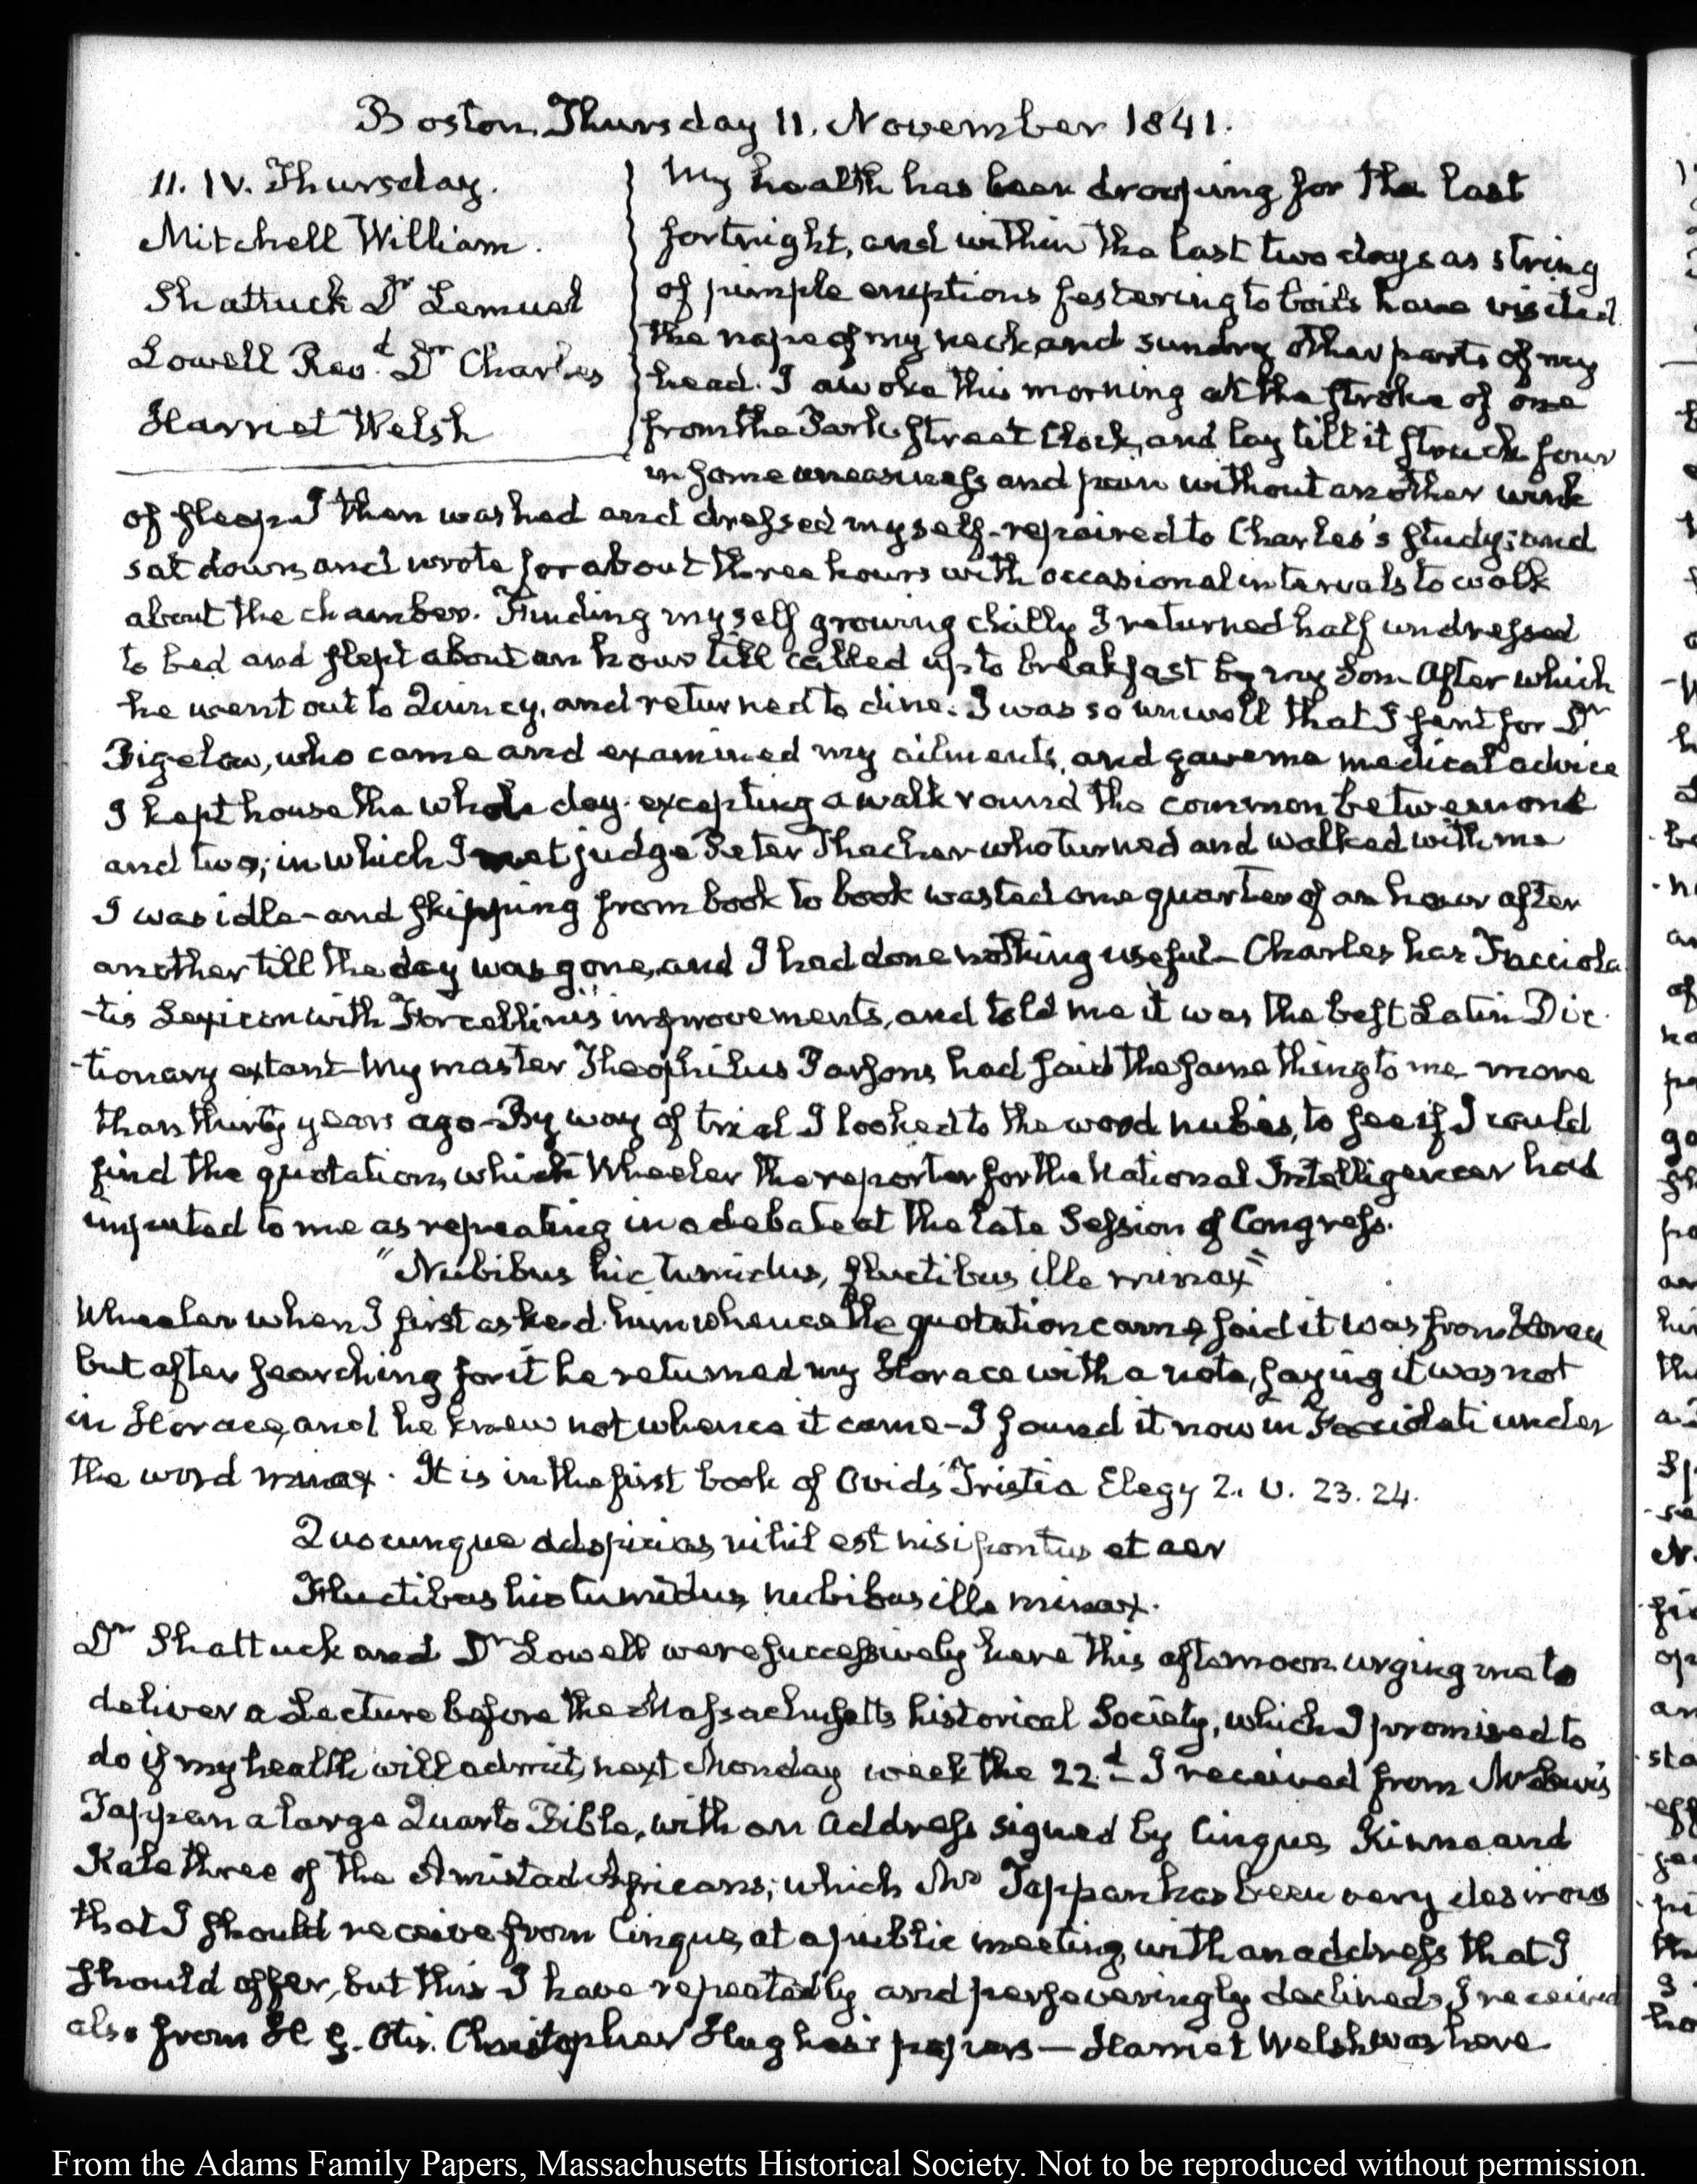 Boston, Thursday 11. November 1841.
11. IV. Thursday.
Mitchell William.
Shattuck Dr Lemuel
Lowell Revd. Dr Charles
Harriet Welsh
My health has been drooping for the last
fortnight, and within the last two days as string
of pimple eruptions festering to boils have visited
the nape of my neck and sundry other parts of my
head. I awoke this morning at the stroke of one
from the Park Street Clock, and lay till it struck four
in some uneasiness and pain without another wink
of sleep I then washed and dressed myself - repaired to Charles's study; and
sat down, and wrote for about three hours with occasional intervals to walk
about the chamber. Finding myself growing chilly I returned half undressed
to bed and slept about an hour till called up to breakfast by my Son After which
he went out to Quincy, and returned to dine. I was so unwell that I sent for Dr
Bigelow, who came and examined my ailments, and gave me medical advice
I kept house the whole day. excepting a walk round the common between one
and two; in which I met judge Peter Thacher who turned and walked with me
I was idle - and skipping from book to book wasted one quarter of an hour after
another till the day was gone, and I had done nothing useful - Charles has Facciola
-tis Lexicon with Forcellini's improvements, and told me it was the best Latin Dic-
-tionary extant - My master Theophilus Parsons, had said the same thing to me more
than thirty years ago - By way of trial I looked to the word nubes, to see if I could
find the quotation, which Wheeler the reporter for the National Intelligencer had
imputed to me as repeating in a debate at the late Session of Congress.
"Nubibus hic tumidus, fluctibus ille minax"
Wheeler when I first asked him whence the quotation came, said it was from Horace
but after searching for it he returned my Horace with a note, saying it was not
in Horace, and he knew not whence it came - I found it now in Facciolati under
the word minax. It is in the first book of Ovid's Tristia Elegy 2. v. 23. 24.
Quocunque adspicias, nihil est nisi pontus et aer
Fluctibus hic tumidus, nubibus ille minax.
Dr Shattuck and Dr Lowell were successively here this afternoon urging me to
deliver a Lecture before the Massachusetts historical Society, which I promised to
do if my health will admit, next Monday week the 22d. - I received from Mr Lewis
Tappan a large Quarto Bible, with an Address signed by Cinque, Kinna and
Kale three of the Amistad Africans; which Mr Tappan has been very desirous
that I should receive from Cinque, at a public meeting, with an address that I
should offer, but this I have repeatedly and perseveringly declined. I received
also from H. G. Otis. Christopher Hughes's papers — Harriet Welsh was here
From the Adams Family Papers, Massachusetts Historical Society. Not to be reproduced without permission.